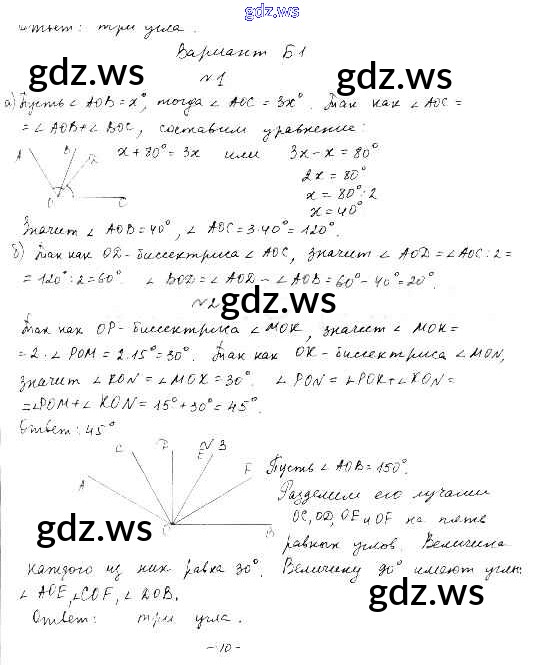 gdz.ws
Ответ: три угла.
Вариант Б1
gdz.ws gdz.ws
№1
а) Пусть ∠AOB = x°, тогда ∠AOC = 3x°. Так как ∠AOC =
= ∠AOB + ∠BOC, составим уравнение:
A B D x + 80° = 3x или 3x - x = 80°
2x = 80°
x = 80° : 2
O C x = 40°
Значит ∠AOB = 40°, ∠AOC = 3·40° = 120°.
б) Так как OD - биссектриса ∠AOC, значит ∠AOD = ∠AOC : 2 =
= 120° : 2 = 60°. ∠BOD = ∠AOD - ∠AOB = 60° - 40° = 20°.
№2
gdz.ws
Так как OP - биссектриса ∠MOK, значит ∠MOK =
= 2·∠POM = 2·15° = 30°. Так как OK - биссектриса ∠MON,
значит ∠KON = ∠MOK = 30°. ∠PON = ∠POK + ∠KON =
= ∠POM + ∠KON = 15° + 30° = 45°.
Ответ: 45°
№3
C D E F
A O B
Пусть ∠AOB = 150°.
Разделим его лучами
OC, OD, OE и OF на пять
gdz.ws gdz.ws
равных углов. Величина
каждого из них равна 30°. Величину 90° имеют углы:
∠AOE, ∠COF, ∠DOB.
gdz.ws
Ответ: три угла.
- 10 -